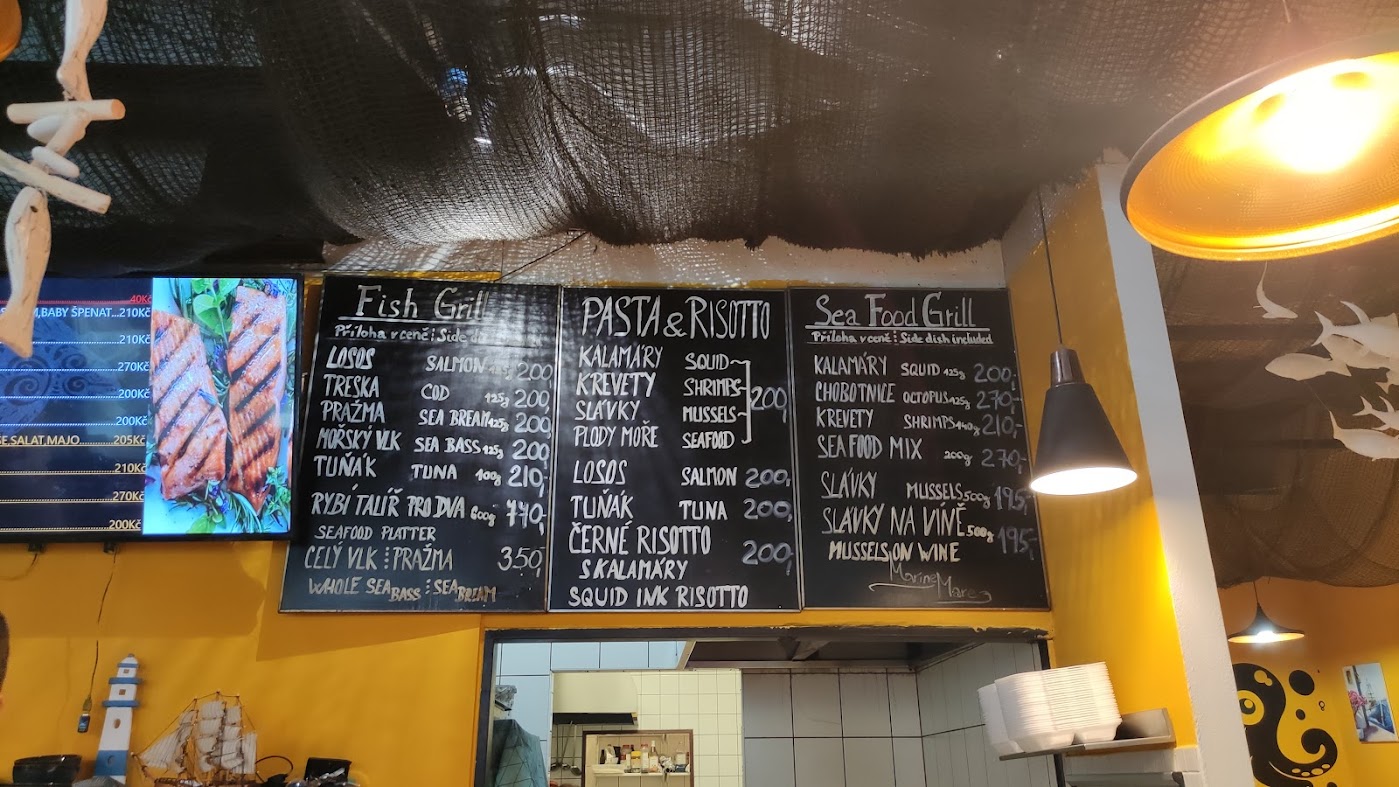 40Kč
M,BABY ŠPENAT...210Kč
210Kč
270Kč
200Kč
200Kč
SE.SALAT,MAJO 205Kč
210Kč
270Kč
200Kč
Fish Grill
Příloha v ceně ⋮ Side
LOSOS SALMON 200,
TRESKA COD 125g 200,
PRAŽMA SEA BREAM 125g 200,
MOŘSKÝ VLK SEA BASS 125g 200
TUŇÁK TUNA 100g 210,-
RYBÍ TALÍŘ PRO DVA 600g
SEAFOOD PLATTER
CELÝ VLK ⋮ PRAŽMA 350,-
WHOLE SEA BASS ⋮ SEA BREAM
PASTA & RISOTTO
KALAMÁRY SQUID
KREVETY SHRIMPS 200,
SLÁVKY MUSSELS
PLODY MOŘE SEAFOOD
LOSOS SALMON 200,
TUŇÁK TUNA 200,
ČERNÉ RISOTTO 200,
S KALAMÁRY
SQUID INK RISOTTO
Sea Food Grill
Příloha v ceně ⋮ Side dish included
KALAMÁRY SQUID 125g 200,-
CHOBOTNICE OCTOPUS 125g 270,-
KREVETY SHRIMPS 140g 210,-
SEAFOOD MIX 200g 270,-
SLÁVKY MUSSELS 500g 195,-
SLÁVKY NA VÍNĚ 500g 195,-
MUSSELS ON WINE
Marine Mare